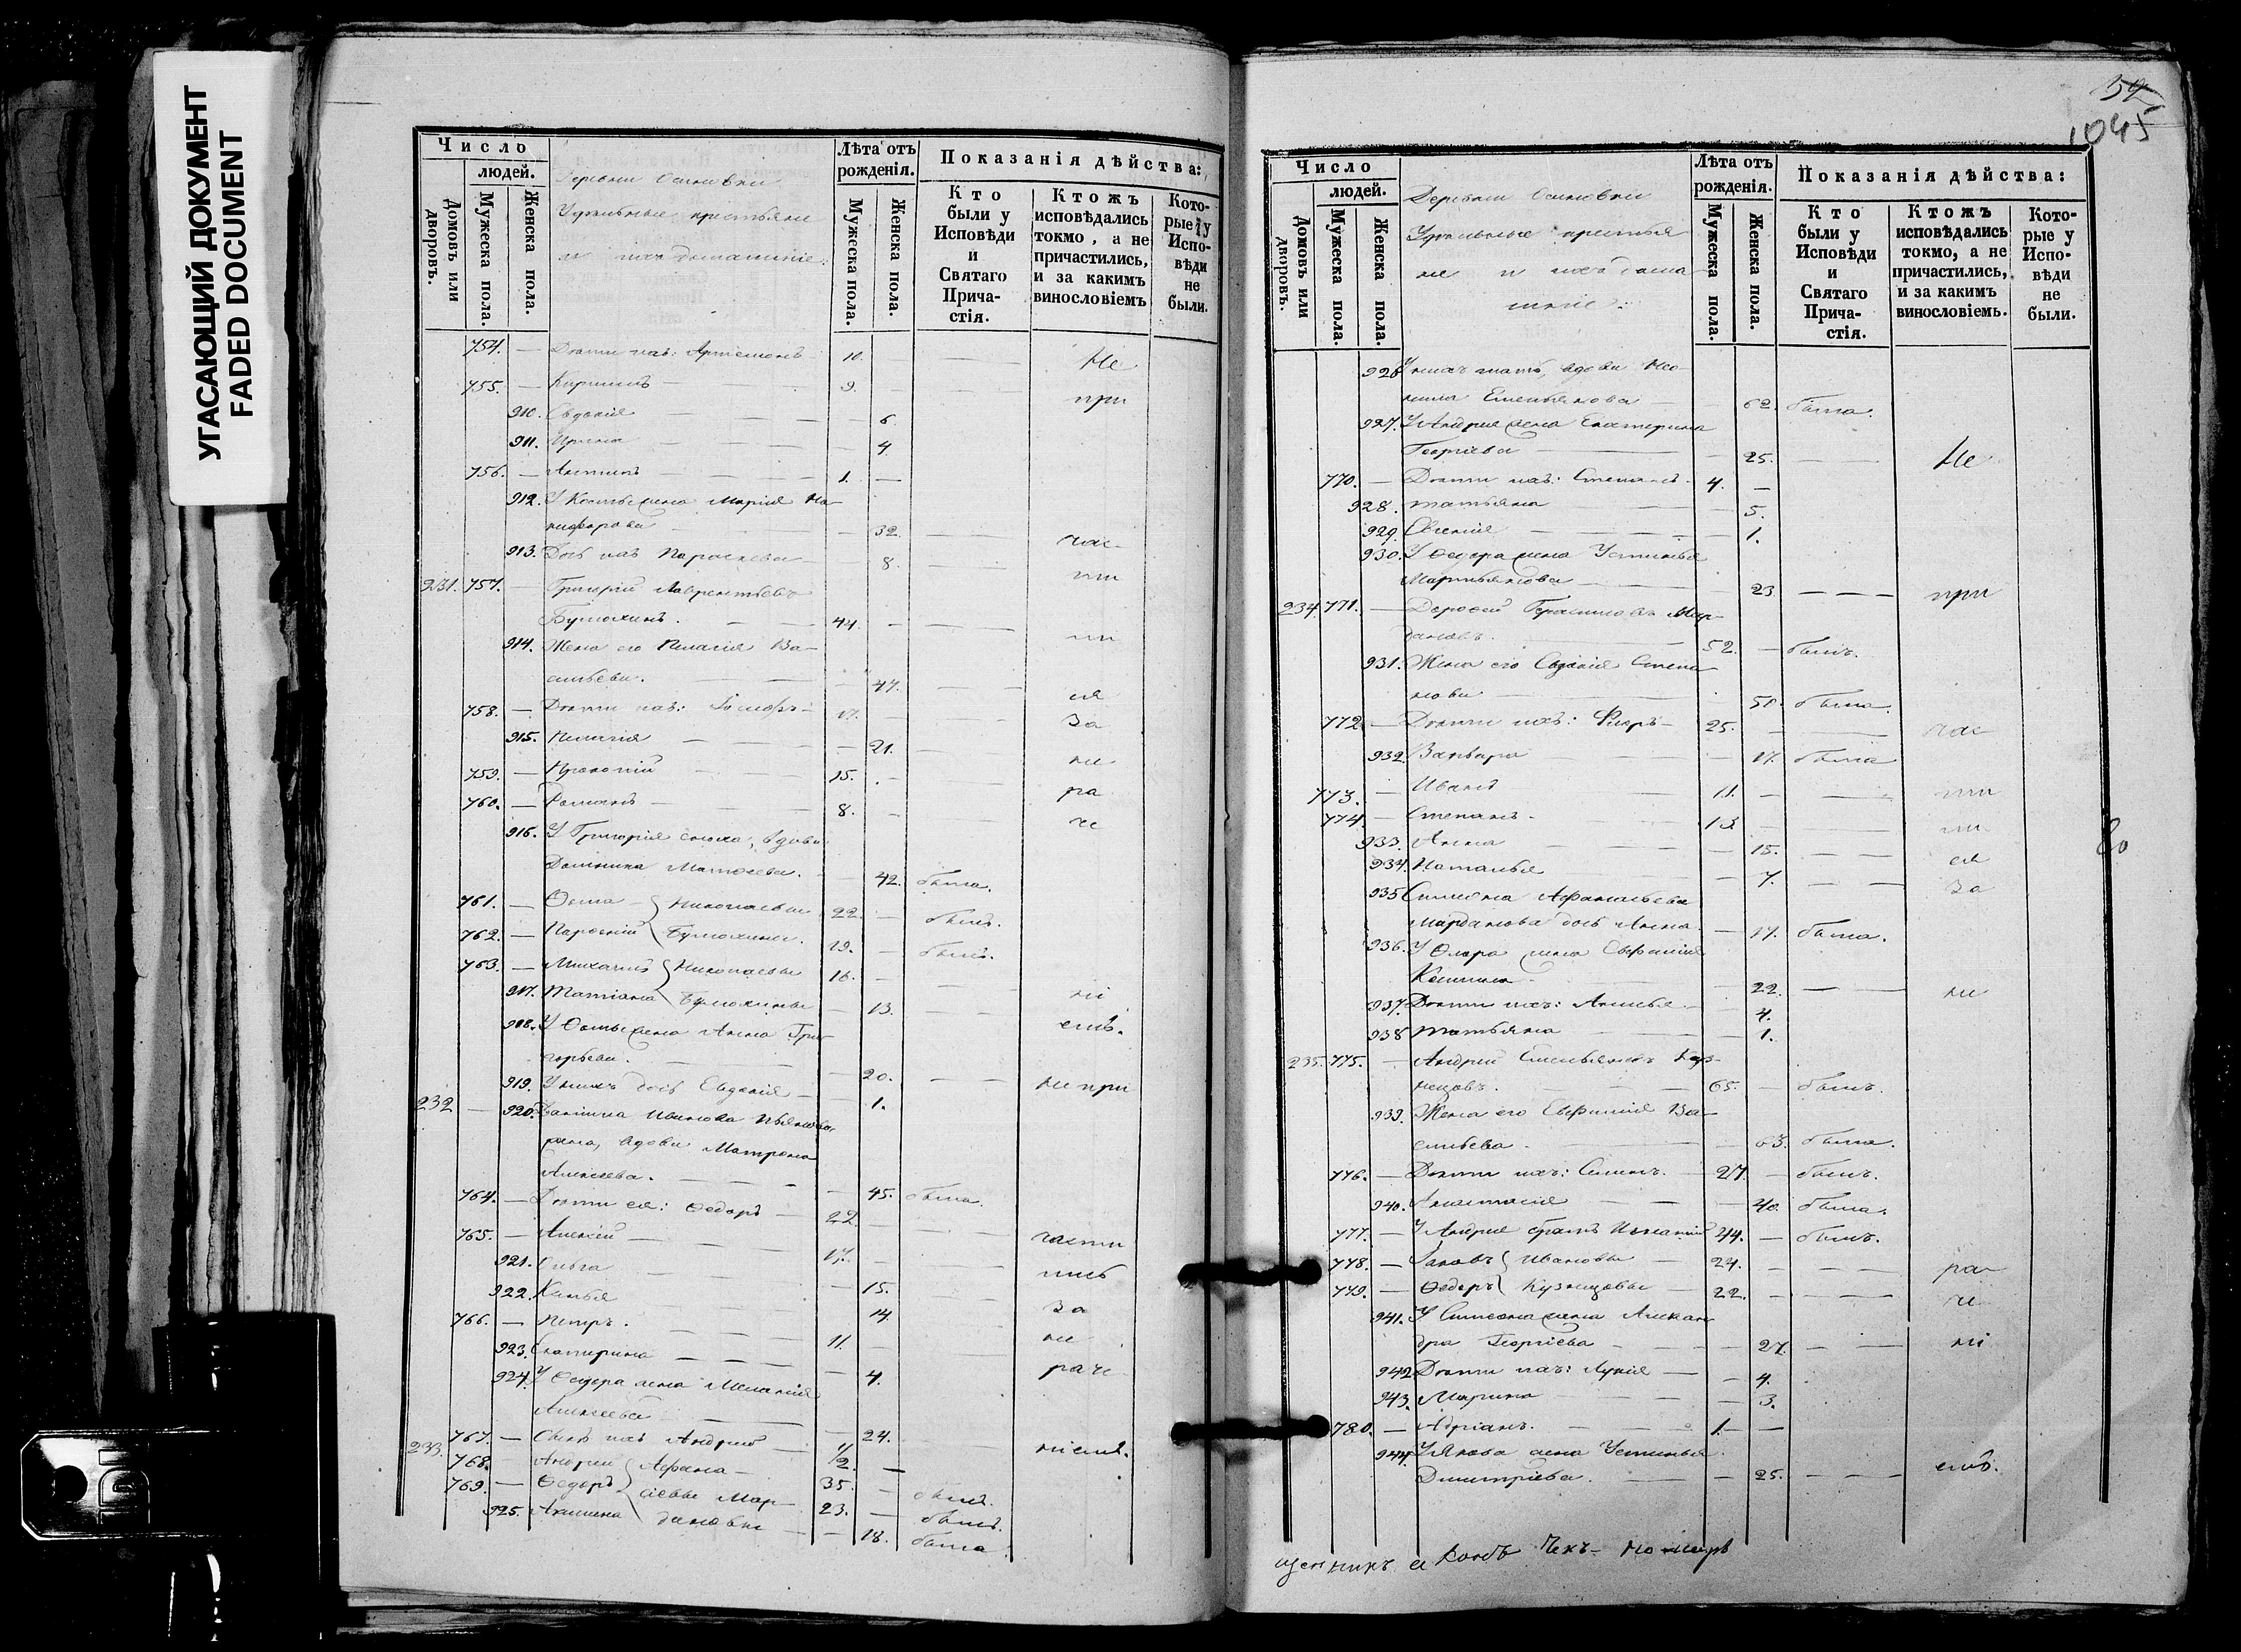 УГАСАЮЩИЙ ДОКУМЕНТ
FADED DOCUMENT
Число
людей.
Домовъ или дворовъ.
Мужеска пола.
Женска пола.
Деревни Осиновки
Удѣльные крестьяне
и ихъ домашніе:
Лѣта отъ рожденія.
Мужеска пола.
Женска пола.
Показанія дѣйства:
Кто были у Исповѣди и Святаго Прича-стія.
Ктожъ исповѣдались токмо, а не причастились, и за какимъ винословіемъ
Кото-рые у Испо-вѣди не были.
754. — Дѣти ихъ: Артемонъ 10. — Не
755. — Кириллъ — 9. при
910. Евдокія — 6
911. Ирина — 4
756. — Антипъ — 1. —
912. У Косьмы жена Марія Ни-
кифорова — 32. — час
913. Дочь ихъ Параскева — 8. — ти
231. 757. — Григорій Лаврентьевъ
44. — ли
914. Жена его Пелагія Ва-
сильева. — 47. — ся
758. — Дѣти ихъ: 17. — За
915. Пелагія — 21. — не
759. — Прокопій — 15. — ра
760. — Романъ — 8. — че
916. У Григорія сноха, вдова
Домника Матѳеева. — 42. была.
761. — Ѳома Николаевы 22. — былъ.
762. — 19. — былъ.
763. — Михаилъ Николаевы 16. — ні
917. Татіана — 13. — емъ.
918. У Ѳомы жена Анна Гри-
горьева. — 20. — не при
919. У нихъ дочь Евдокія — 1.
232 — 920. Ивановa
вдова Матрона
Алексеева. — 45. была.
764. — Дѣти ея: Ѳедоръ — 22. — части
765. — Алексѣй — 17. — лись
921. Ольга — 15. — За
922. — 14. не
766. — Петръ. — 11. — раче
923. Екатерина — 4.
924. У Ѳедора жена Меланія
Алексеева — 24. — ніемъ.
767. — Сынъ ихъ Андрей — 1/2 —
233. 768. — Андрей Афана- 35. — былъ.
769. — Ѳедоръ сіевы Мар- 23. — былъ.
925. Акилина дановы — 18. была.
54
1045
Число
людей.
Домовъ или дворовъ.
Мужеска пола.
Женска пола.
Деревни Осиновки
Удѣльные крестья
не и ихъ дома
шніе:
Лѣта отъ рожденія.
Мужеска пола.
Женска пола.
Показанія дѣйства:
Кто были у Исповѣди и Святаго Прича-стія.
Ктожъ исповѣдались токмо, а не причастились, и за какимъ винословіемъ.
Кото-рые у Испо-вѣди не были.
926 У нихъ мать, вдова Нео-
нила Емельянова — 62. была.
927. У Андрея жена Екатерина
Георгіева — 25. — Не
770. — Дѣти ихъ: Степанъ. 4. —
928. Татьяна — 5.
929. Евгенія — 1.
930. У Ѳедора жена Устинья
Мартьянова — 23 — при
234. 771. — Дорофей Герасимовъ Мар-
дановъ. — 52. — былъ.
931. Жена его Евдокія Степа-
нова — 50. была.
772 — Дѣти ихъ: Флоръ — 25. — час
932 Варвара — 17. была
773. — Иванъ 11. — ти
774. — Степанъ. 13 — ли
933. Анна — 15. — ся
934. Наталья — 7. — За
935 Симеона Афанасьева
Марданова дочь Анна — 17. была.
936. У Флора жена Евфимія
— 22. — не
937. Дѣти ихъ: — 4.
938 Татьяна — 1.
235. 775. — Андрей Емельяновъ Куз-
нецовъ. — 65. — былъ.
939. Жена его Евфимія Ва-
сильева. — 63. была.
776. — Дѣти ихъ: Симеонъ. 27 — былъ.
940. Анастасія — 40. была.
777. — У Андрея братъ Игнатій 44. — былъ.
778. — Іаковъ Ивановы — 24. — ра
779. — Ѳедоръ Кузнецовы — 22. — че
941. У Симеона жена Алексан
дра Георгіева — 27. — ні
942 Дѣти ихъ: Лукія — 4.
943. Марина — 3.
780. — Адріанъ. — 1. —
944. У Якова жена Устинья
Дмитріева. — 25. — емъ.
щенникъ